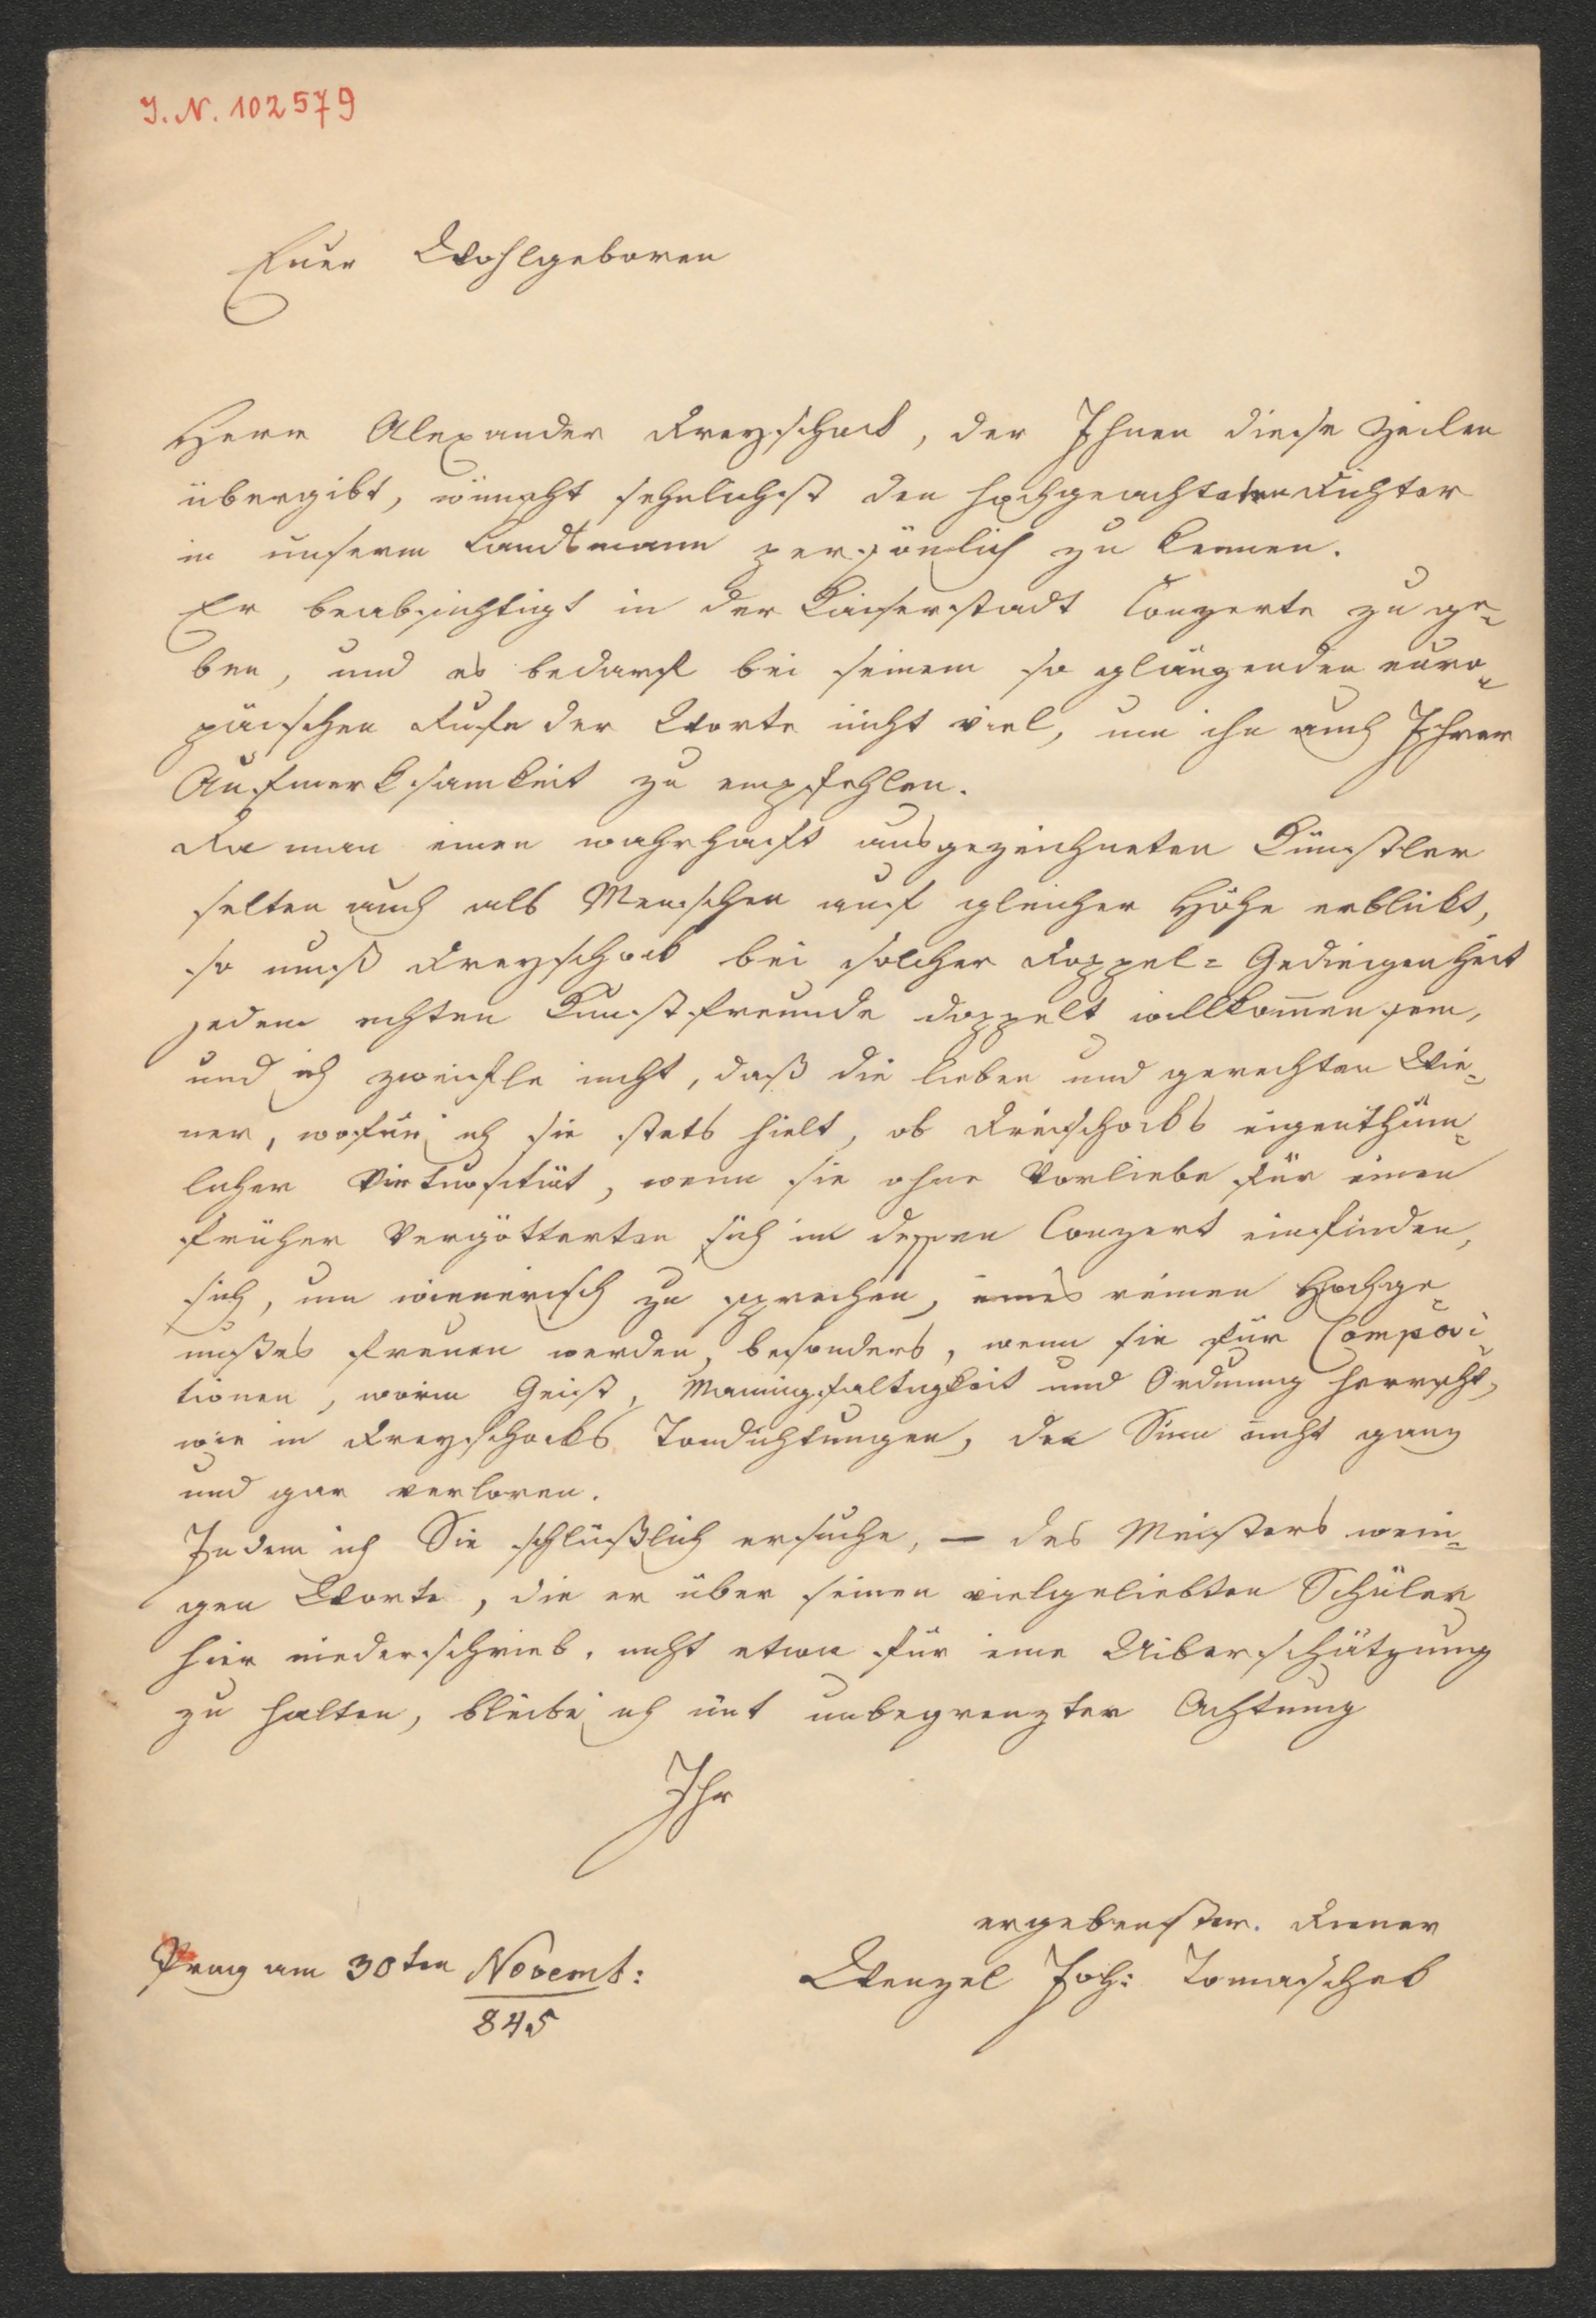 I. N. 102579
Euer Wohlgeboren
Herr Alexander Dreyschock, der Ihnen diese Zeilen
übergibt, wünscht sehnlichst den hochgeachteten Dichter
in unserm Landsmann persönlich zu kennen.
Er beabsichtigt in der Kaiserstadt Conzerte zu ge=
ben, und es bedarf bei seinem so glänzenden euro=
päischen Rufe der Worte nicht viel, um ihn auch Ihrer
Aufmerksamkeit zu empfehlen.
Da man einen wahrhaft ausgezeichneten Künstler
selten auch als Menschen auf gleicher Höhe erblickt,
so muß Dreyschock bei solcher Doppel=Gediegenheit
jedem echten Kunstfreunde doppelt willkom̅en sein,
und ich zweifle nicht, daß die lieben und gerechten Wie=
ner, wofür ich sie stets hielt, ob Dreischocks eigenthüm=
licher Virtuosität, wenn sie ohne Vorliebe für einen
früher Vergötterten sich im dessen Conzert einfinden,
sich, um wienerisch zu sprechen, eines reinen Hochge=
nußes freuen werden, besonders, wenn sie für Composi=
tionen, worin Geist, Mannigfaltigkeit und Ordnung herrscht,
wie in Dreyschocks Tondichtungen, den Sinn nicht ganz
und gar verloren.
Indem ich Sie schlüßlich ersuche, – des Meisters weni=
gen Worte, die er über seinen vielgeliebten Schüler
hier niederschrieb, nicht etwa für eine Uiberschätzung
zu halten, bleibe ich mit unbegrenzter Achtung
Ihr
ergebenster Diener
Prag am 30ten Novemb: Wenzel Joh: Tomaschek
845